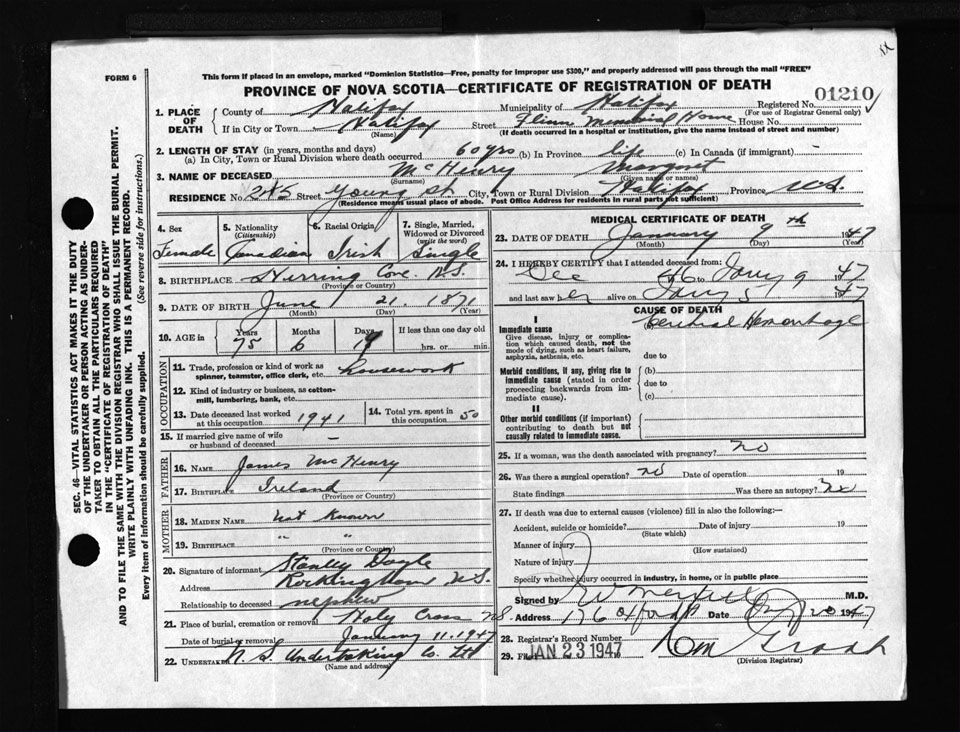 FORM 6
This form if placed in an envelope, marked "Dominion Statistics—Free, penalty for improper use $300," and properly addressed will pass through the mail "FREE"
PROVINCE OF NOVA SCOTIA—CERTIFICATE OF REGISTRATION OF DEATH
01210
1. PLACE OF DEATH
County of Halifax Municipality of Halifax Registered No.
(For use of Registrar General only)
If in City or Town Halifax Street Flinn Memorial Home House No.
(Name) (If death occurred in a hospital or institution, give the name instead of street and number)
2. LENGTH OF STAY (in years, months and days)
(a) In City, Town or Rural Division where death occurred 60 yrs (b) In Province life (c) In Canada (if immigrant) -
3. NAME OF DECEASED McHenry Margaret
(Surname) (Given name or names)
RESIDENCE No. 285 Street Young St City, Town or Rural Division Halifax Province N.S.
(Residence means usual place of abode. Post Office Address for residents in rural parts not sufficient)
4. Sex Female
5. Nationality (Citizenship) Canadian
6. Racial Origin Irish
7. Single, Married, Widowed or Divorced (write the word) Single
8. BIRTHPLACE Herring Cove N.S.
(Province or Country)
9. DATE OF BIRTH June 21. 1871
(Month) (Day) (Year)
10. AGE in Years Months Days If less than one day old
75 6 19 hrs. or min.
OCCUPATION
11. Trade, profession or kind of work as spinner, teamster, office clerk, etc. housework
12. Kind of industry or business, as cotton-mill, lumbering, bank, etc.
13. Date deceased last worked at this occupation 1941
14. Total yrs. spent in this occupation 50
15. If married give name of wife or husband of deceased —
FATHER
16. NAME James McHenry
17. BIRTHPLACE Ireland
(Province or Country)
MOTHER
18. MAIDEN NAME not known
19. BIRTHPLACE " "
(Province or Country)
20. Signature of informant Stanley Doyle
Address Rockingham N.S.
Relationship to deceased nephew
21. Place of burial, cremation or removal Holy Cross NS
Date of burial or removal January 11. 1947
22. UNDERTAKER N. S. Undertaking Co. Ltd
(Name and address)
MEDICAL CERTIFICATE OF DEATH
23. DATE OF DEATH January 9th 1947
(Month) (Day) (Year)
24. I HEREBY CERTIFY that I attended deceased from:
Dec 46 to Jany 9 1947
and last saw her alive on Jany 5 1947
CAUSE OF DEATH
I
Immediate cause Cerebral Hemorrhage
Give disease, injury or complication which caused death, not the mode of dying, such as heart failure, asphyxia, asthenia, etc.
due to
Morbid conditions, if any, giving rise to immediate cause (stated in order proceeding backwards from immediate cause).
(b)
due to
(c)
II
Other morbid conditions (if important) contributing to death but not causally related to immediate cause.
25. If a woman, was the death associated with pregnancy? no
26. Was there a surgical operation? no Date of operation 19
State findings Was there an autopsy? no
27. If death was due to external causes (violence) fill in also the following:—
Accident, suicide or homicide? Date of injury 19
(State which)
Manner of injury
(How sustained)
Nature of injury
Specify whether injury occurred in industry, in home, or in public place
Signed by M.D.
Address 176 Oxford St Date 1947
28. Registrar's Record Number
29. JAN 23 1947
(Division Registrar)
SEC. 46—VITAL STATISTICS ACT MAKES IT THE DUTY
OF THE UNDERTAKER OR PERSON ACTING AS UNDER-
TAKER TO OBTAIN ALL THE PARTICULARS REQUIRED
IN THE "CERTIFICATE OF REGISTRATION OF DEATH"
AND TO FILE THE SAME WITH THE DIVISION REGISTRAR WHO SHALL ISSUE THE BURIAL PERMIT.
WRITE PLAINLY WITH UNFADING INK. THIS IS A PERMANENT RECORD.
Every item of information should be carefully supplied. (See reverse side for instructions.)